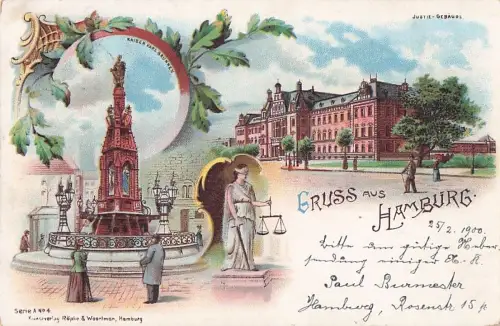 KAISER KARL BRUNNEN
JUSTIZ-GEBÄUDE
GRUSS AUS
HAMBURG.
25/2. 1900.
bitte um gütige Ueber-
sendung einiger A. K.
Paul Burmester
Hamburg, Rosenstr. 15 P.
Serie A No 4.
Kunstverlag & Woortman, Hamburg